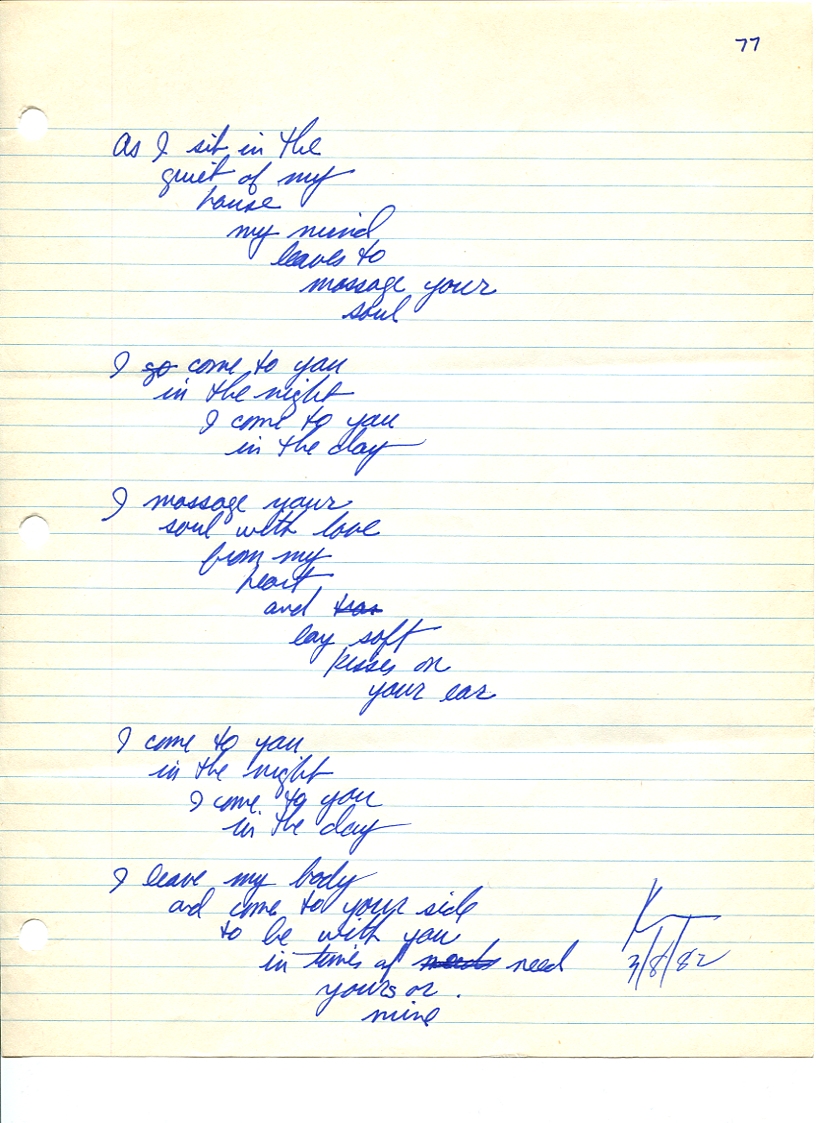 77
As I sit in the
quiet of my
house
my mind
leaves to
massage your
soul
I go come to you
in the night
I come to you
in the day
I massage your
soul with love
from my
heart
and
lay soft
kisses on
your ear
I come to you
in the night
I come to you
in the day
I leave my body
and come to your side
to be with you
in times of needs need
yours or
mine
KT
3/8/82